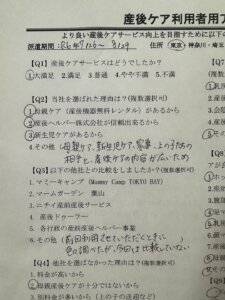 産後ケア利用者用ア
より良い産後ケアサービス向上を目指すために以下の
派遣期間 住所 東京・神奈川・埼玉
【Q1】産後ケアサービスはどうでしたか？
1. 大満足 2. 満足 3. 普通 4. やや不満 5. 不満
【Q2】当社を選ばれた理由は？（複数選択可）
1. 母親ケア（産後機器無料レンタル）があるから
2. 産後ヘルパー株式会社が信頼出来るから
3. 新生児ケアがあるから
4. その他（母親ケア、新生児ケア、家事、上の子供の
相手と、産後ケアの内容が広いため
【Q3】以下の他社との比較をしましたか？（複数選択可）
1. マミーキャンプ（Mammy Camp TOKYO BAY）
2. マームガーデン 葉山
3. ニチイ産前産後サービス
4. 産後ドゥーラー
5. 各行政の産前産後ヘルパー事業
6. その他（前回利用させていただくときに、
色々調べたが、今回は比較していない
【Q4】他社を選ばなかった理由は？（複数選択可）
1. 料金が高いから
2. 母親産後ケアが十分ではないから
3. 別料金が多いから（上の子の送迎など）